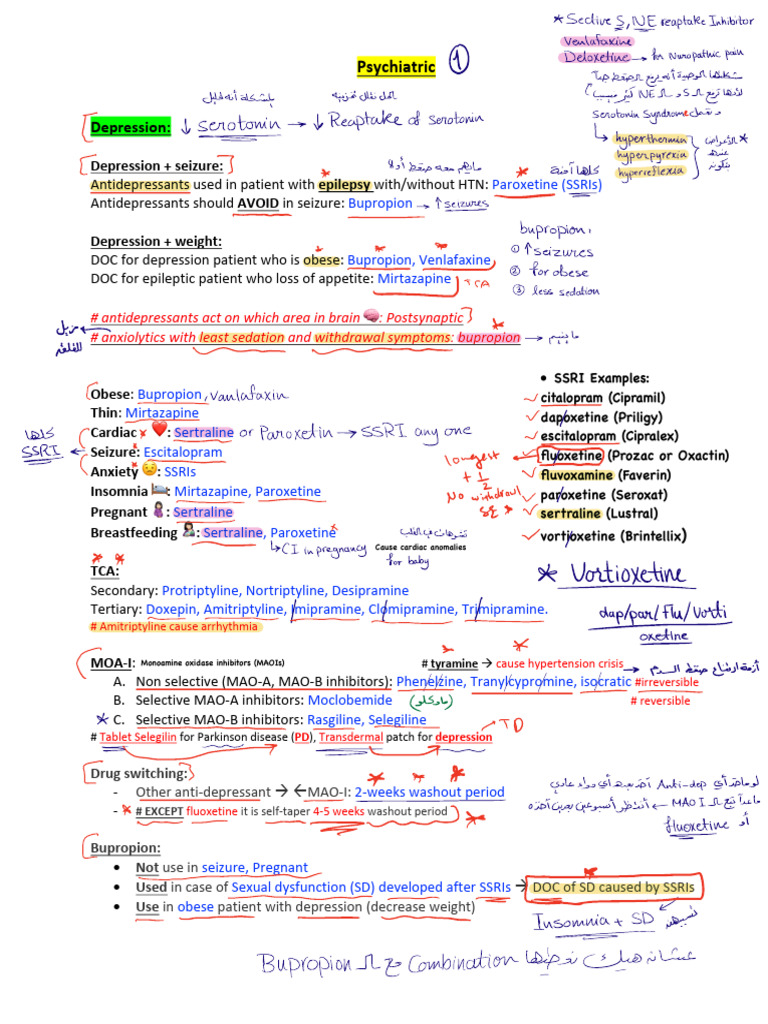 * Sective S, NE reaptake Inhibitor
Venlafaxine
Deloxetine → for Neuropathic pain
Psychiatric 1
Serotonin Syndrome
hyperthermia
hyperpyrexia
hyperreflexia
Depression: ↓ serotonin → ↓ Reaptake of serotonin
Depression + seizure:
Antidepressants used in patient with epilepsy with/without HTN: Paroxetine (SSRIs)
Antidepressants should AVOID in seizure: Bupropion → ↑ seizures
Depression + weight:
DOC for depression patient who is obese: Bupropion, Venlafaxine
DOC for epileptic patient who loss of appetite: Mirtazapine TCA
bupropion:
① ↑ seizures
② for obese
③ less sedation
# antidepressants act on which area in brain 🧠: Postsynaptic
# anxiolytics with least sedation and withdrawal symptoms: bupropion →
Obese: Bupropion, vanlafaxin
Thin: Mirtazapine
Cardiac ❤️: Sertraline or Paroxetin → SSRI any one
كلها SSRI ← Seizure: Escitalopram
Anxiety 😟: SSRIs
Insomnia 🛌: Mirtazapine, Paroxetine
Pregnant 🤰: Sertraline
Breastfeeding 🤱: Sertraline, Paroxetine
CI in pregnancy
Cause cardiac anomalies
for baby
• SSRI Examples:
✓ citalopram (Cipramil)
dapoxetine (Priligy)
✓ escitalopram (Cipralex)
✓ fluoxetine (Prozac or Oxactin)
✓ fluvoxamine (Faverin)
paroxetine (Seroxat)
✓ sertraline (Lustral)
✓ vortioxetine (Brintellix)
longest
t 1/2
No withdrawl
SE
* Vortioxetine
dap/par/flu/vorti
oxetine
TCA:
Secondary: Protriptyline, Nortriptyline, Desipramine
Tertiary: Doxepin, Amitriptyline, Imipramine, Clomipramine, Trimipramine.
# Amitriptyline cause arrhythmia
MOA-I: Monoamine oxidase inhibitors (MAOIs) # tyramine → cause hypertension crisis → أزمة ارتفاع ضغط الدم
A. Non selective (MAO-A, MAO-B inhibitors): Phenelzine, Tranylcypromine, isocratic #irreversible
B. Selective MAO-A inhibitors: Moclobemide (ماوكلو) # reversible
* C. Selective MAO-B inhibitors: Rasgiline, Selegiline
# Tablet Selegilin for Parkinson disease (PD), Transdermal patch for depression TD
Drug switching:
- Other anti-depressant → ←MAO-I: 2-weeks washout period
- # EXCEPT fluoxetine it is self-taper 4-5 weeks washout period
أو fluoxetine
Bupropion:
• Not use in seizure, Pregnant
• Used in case of Sexual dysfunction (SD) developed after SSRIs → DOC of SD caused by SSRIs
• Use in obese patient with depression (decrease weight)
Insomnia + SD
عشانه هيك نعطيها Combination مع ال Bupropion